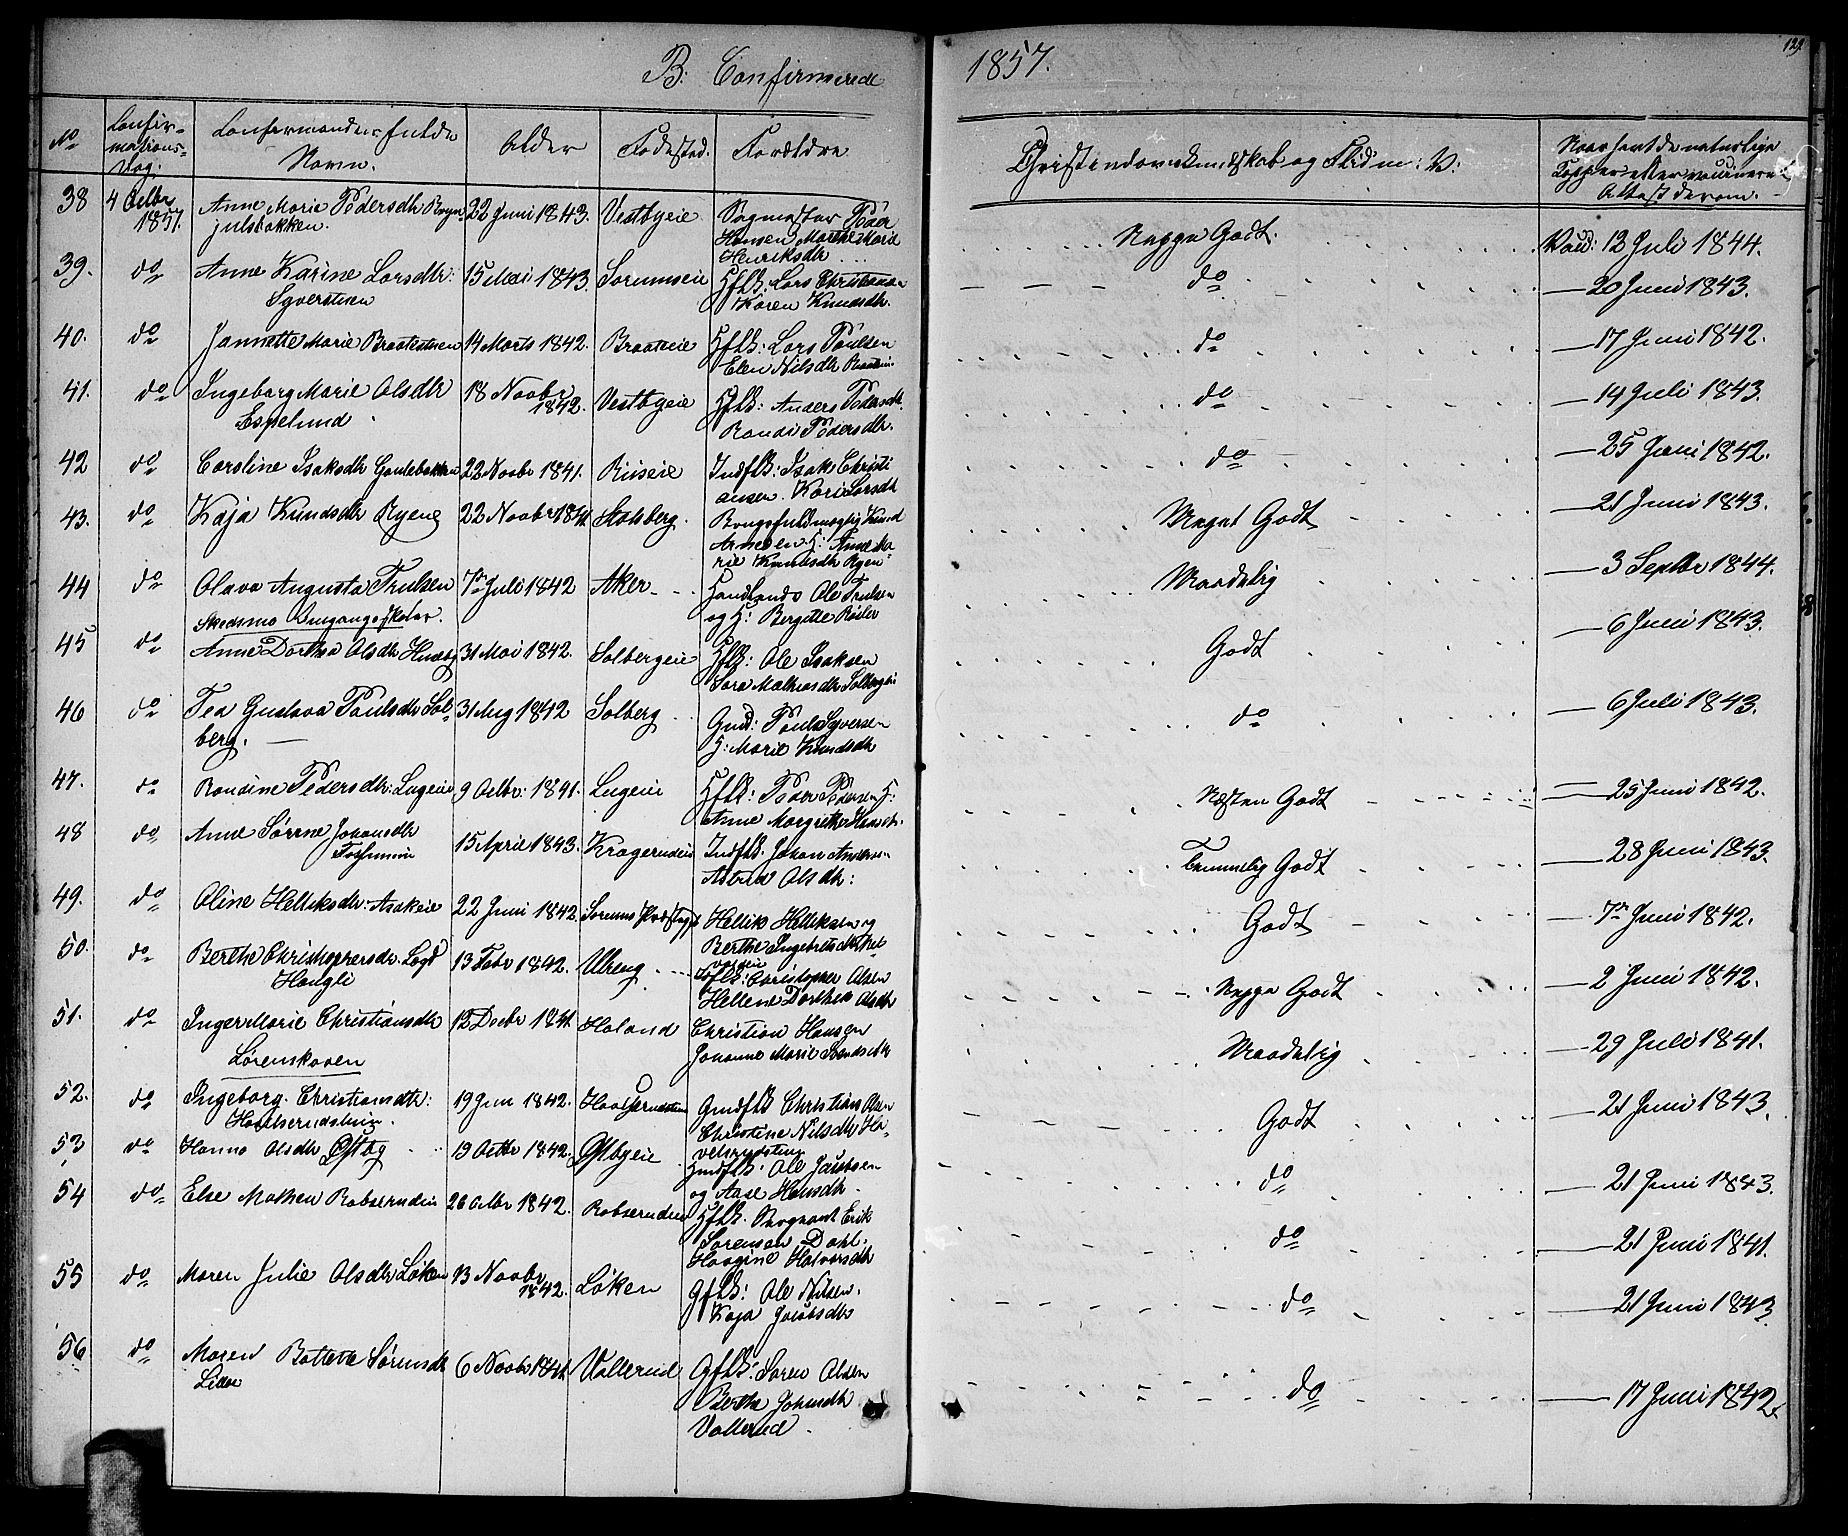 B: Confirmerede 1857.
129
No
Confir-
mations-
Dag.
Confirmandens fulde
Navn.
Alder
Fødested.
Forældre
Christendomskundskab og Flid m: V:
Naar havt de naturlige
Kopper eller vaccineret
Attest derom.
38 4 Octbr 1857. Anne Marie Pedersdtr
julsbakken. 22 Juni 1843. Vestbyeie Sagmester Peder
Hansen Marthe Marie
Henriksdtr Neppe Godt. Vaud: 12 Juli 1844.
39. do Anne Karine Larsdtr:
Syverstuen 15 Mai 1843. Sørumeie Hflk: Lars Christiansen
Karen Knudsdtr. do 20 Juni 1843.
40. do Jannette Marie Braatestuen 14 Marts 1842. Braateeie Hflk: Lars Poulsen
Elen Nilsdtr do 17 Juni 1842.
41. do Ingeborg Marie Olsdtr
Espelund 18 Novbr 1842. Vestbyeie Hflk: Anders Pedersen
Randi Pedersdtr. do 14 Juli 1843.
42 do Caroline Isaksdtr Gaulebakken 22 Novbr 1841. Riiseie Indflk: Isak Christi
ansen. Kari Larsdtr do 25 Juni 1842.
43. do Kaja Knudsdtr Ryene 22 Novbr 1841 Stalsberg. Brugsfuldmægtig Knud
Arnesen H: Anne Ma-
rie Knudsdtr Ryen Meget Godt 21 Juni 1843.
44 do Olava Augusta Trulsen 7de Juli 1842 Aker Handlende Ole Trulsen
og H: Birgitte Røsler Maadelig 3 Septbr 1844.
Skedsmo Omgangsskoler.
45 do Anne Dorthea Olsdtr Huseby 31 Mai 1842. Solbergeie Hflk: Ole Isaksen
Sara Mathiasdtr Solbergeie Godt 6 Juni 1843.
46 do Tea Gustava Poulsdtr Sol-
berg. 31 Aug 1842 Solberg Gmd: Poul Syversen
H: Marie Knudsdtr do 6 Juli 1843.
47. do Randine Pedersdtr: Lugeie 9 Octbr: 1841. Lugeie Hflk: Peder Pedersen H:
Anne Margrethe Hansdtr. Næsten Godt 25 Juni 1842.
48 do Anne Sørine Johansdtr
15 April 1843. Krageruđeie Indflk. Johan Andersen
Astrid Olsdtr: temmelig Godt 28 Juni 1843.
49. do Oline Helliksdtr. Asakeie 22 Juni 1842. Sørums Præstegd Hellik Helliksen og
Berthe Ingebretsdtr Godt 7de Juni 1842.
50. do Berthe Christophersdtr. Legd
Haugli 13 Febr 1842. Ulreng Hflk: Christopher Olsen
Hellene Dorthea Olsdtr Neppe Godt 2 Juni 1842.
51. do Inger Marie Christiansdtr 12 Decbr 1841 Høland Christian Hansen
Johanne Marie Svendsdtr Maadelig 29 Juli 1841.
Lørenskoven
52. do Ingeborg. Christiansdtr:
19 Juni 1842. Gmdflk Christian Olsen
Christine Nilsdtr Ha-
velsrudsting Godt 21 Juni 1843.
53 do Hanna Olsdtr Østby 19 Octbr 1842. Østbyeie Hmdflk: Ole Jacobsen
og Aase Hansdtr do 21 Juni 1843.
54 do Else Mathea Robsrudeie 26 Octbr 1842. Robsrudeie Hflk. Sergeant Erik
Sørensen Dahl.
Haagine Halvorsdtr do 21 Juni 1841.
55 do Maren Julie Olsdtr Løken 13 Novbr 1842. Løken Gflk: Ole Nilsen.
Kaja Jacobsdtr do 21 Juni 1843
56 do Maren Bollette Sørensdtr
6 Novbr 1841 Vallerud Gflk: Søren Olsen
Berthe Johansdtr
Vallerud. do 17 Juni 1842.